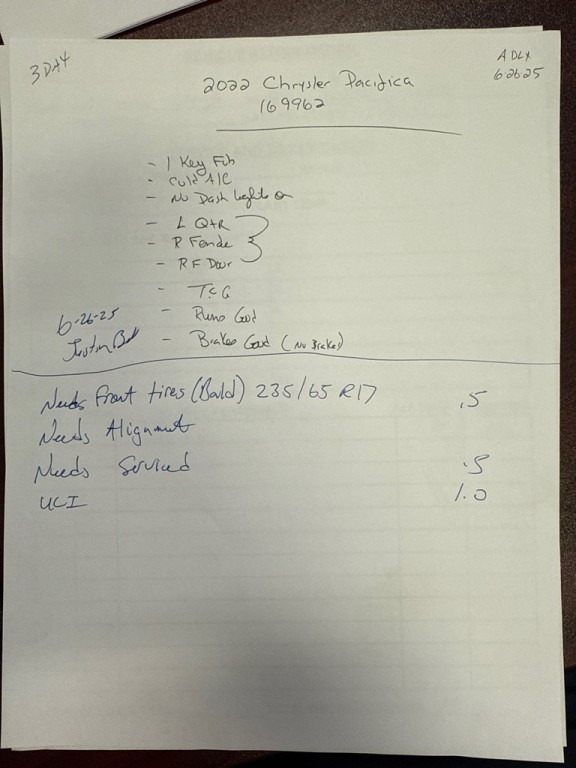 3 DAY
ADLX
6-26-25
2022 Chrysler Pacifica
169962
- 1 Key Fob
- Cold A/C
- No Dash Lights on
- L QtR
- R Fender
- RF Door
- T&G
- Runs Good
- Brakes Good (No Brakes)
6-26-25
Justin
Needs front tires (Bald) 235/65 R17 .5
Needs Alignment
Needs Serviced .5
UCI 1.0